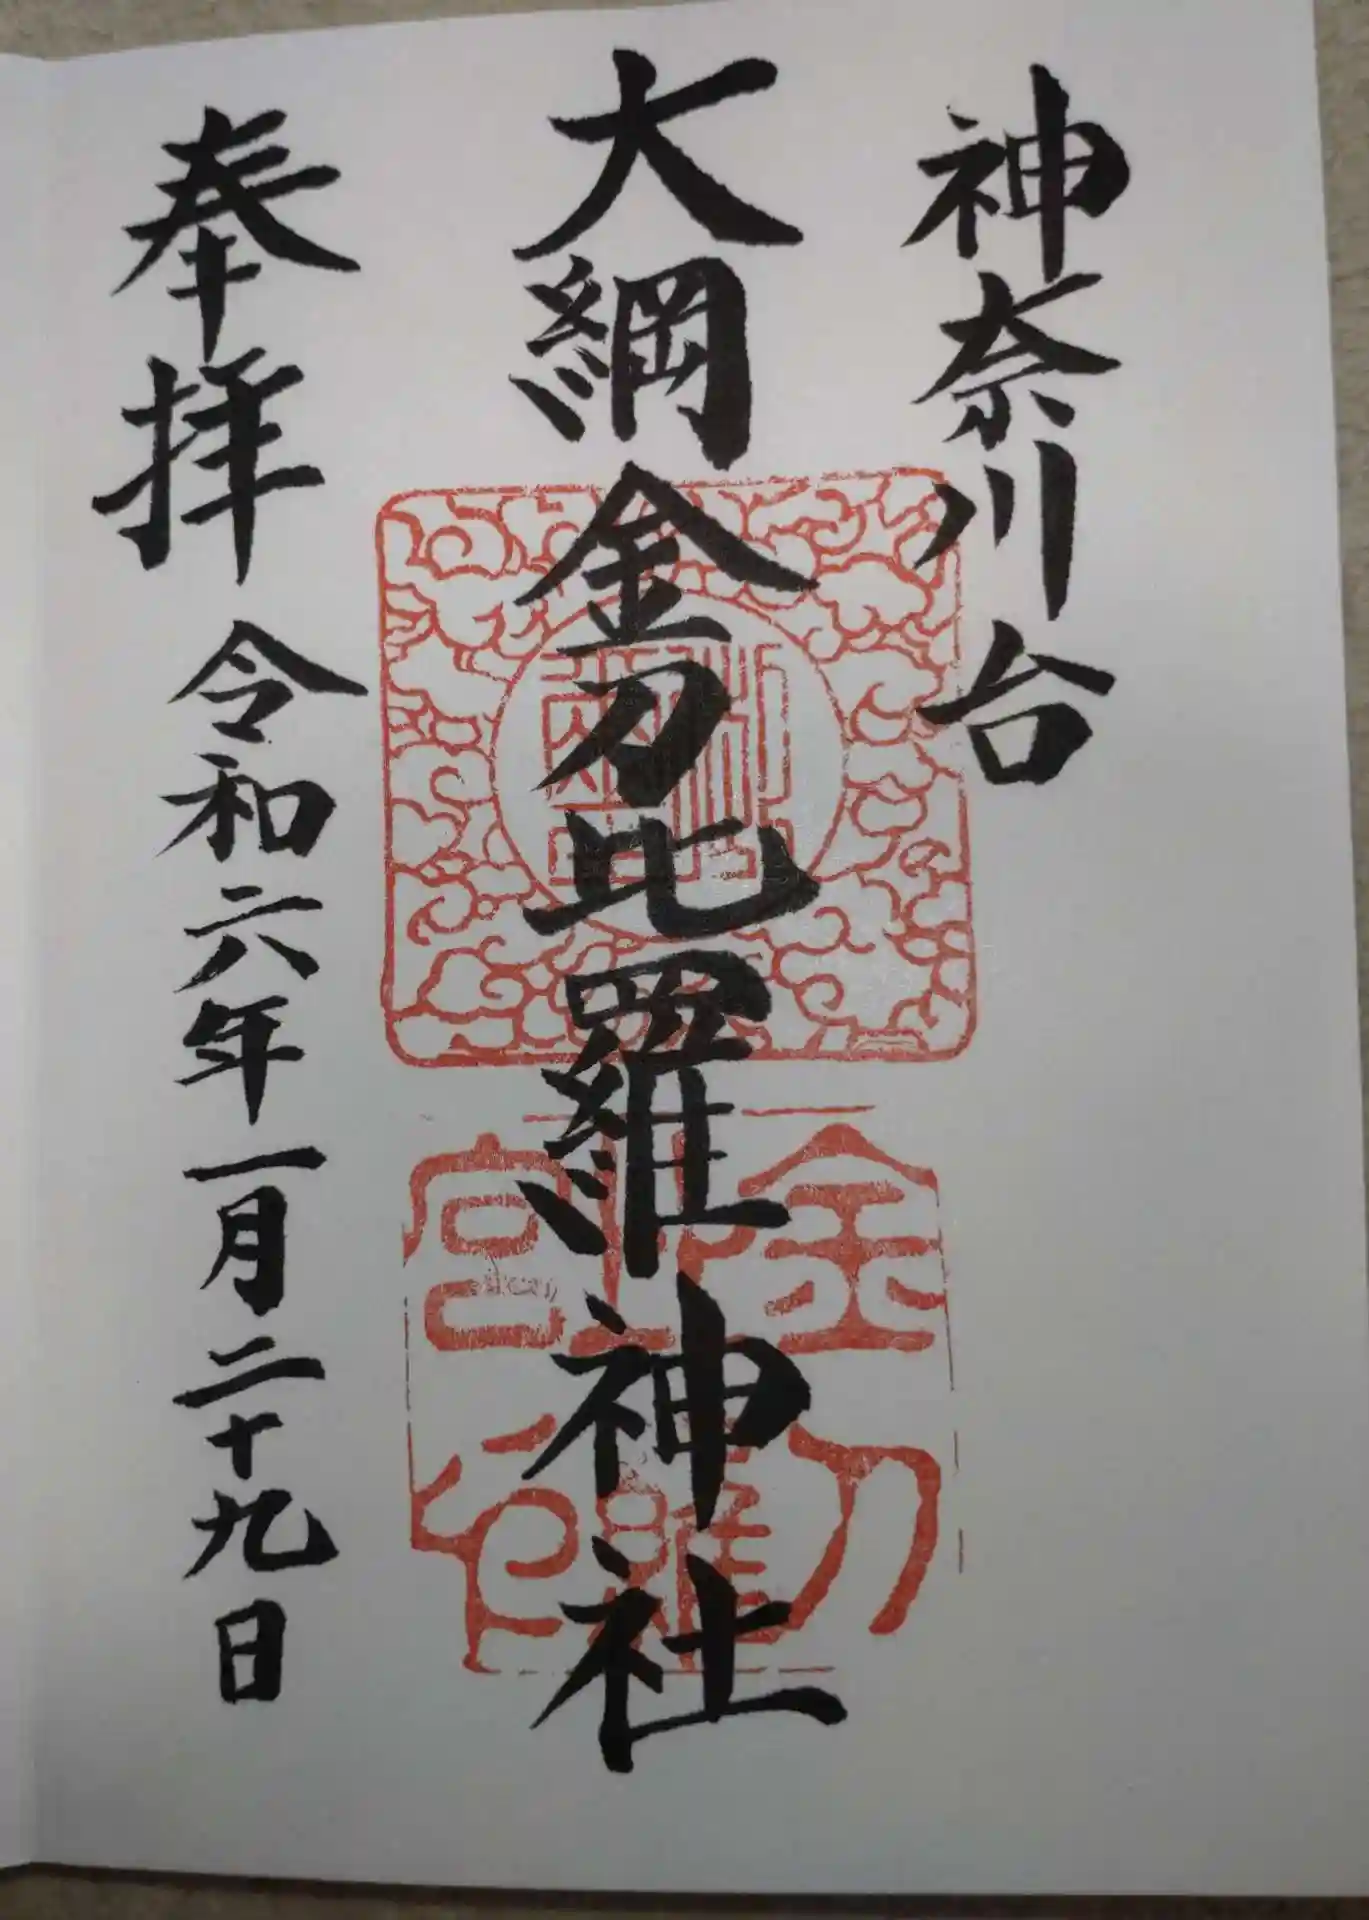 神奈川台
大綱金刀比羅神社
奉拝
令和六年一月二十九日